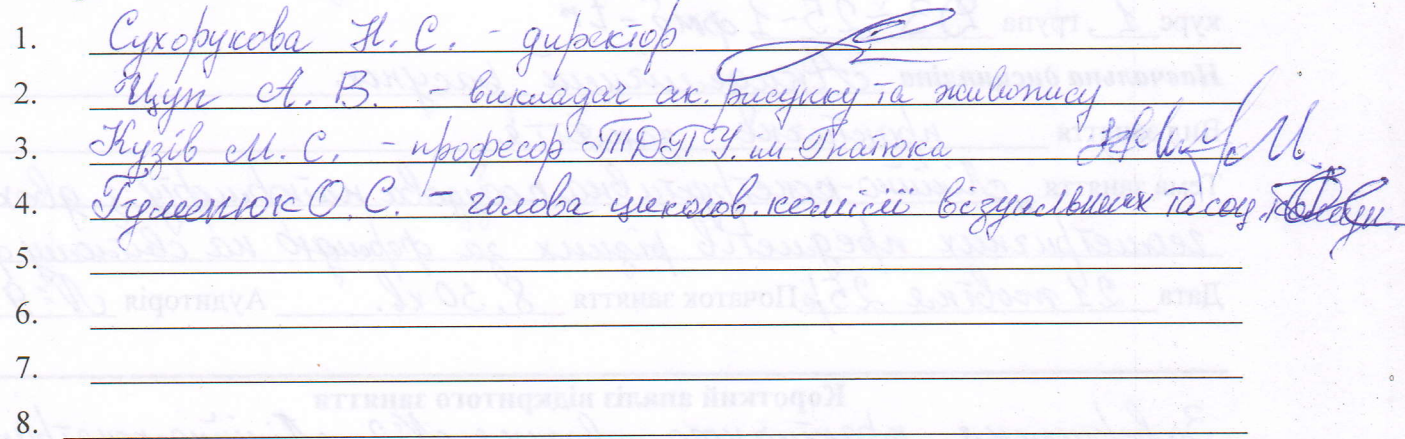 1. Сухорукова Н. С. - директор
2. Щуп А. В. - викладач ак. рисунку та живопису
3. Кузів М. С. - професор ТДПУ ім. Гнатюка
4. Гуменюк О. С. - голова циклов. комісії візуальних та соц.
5.
6.
7.
8.